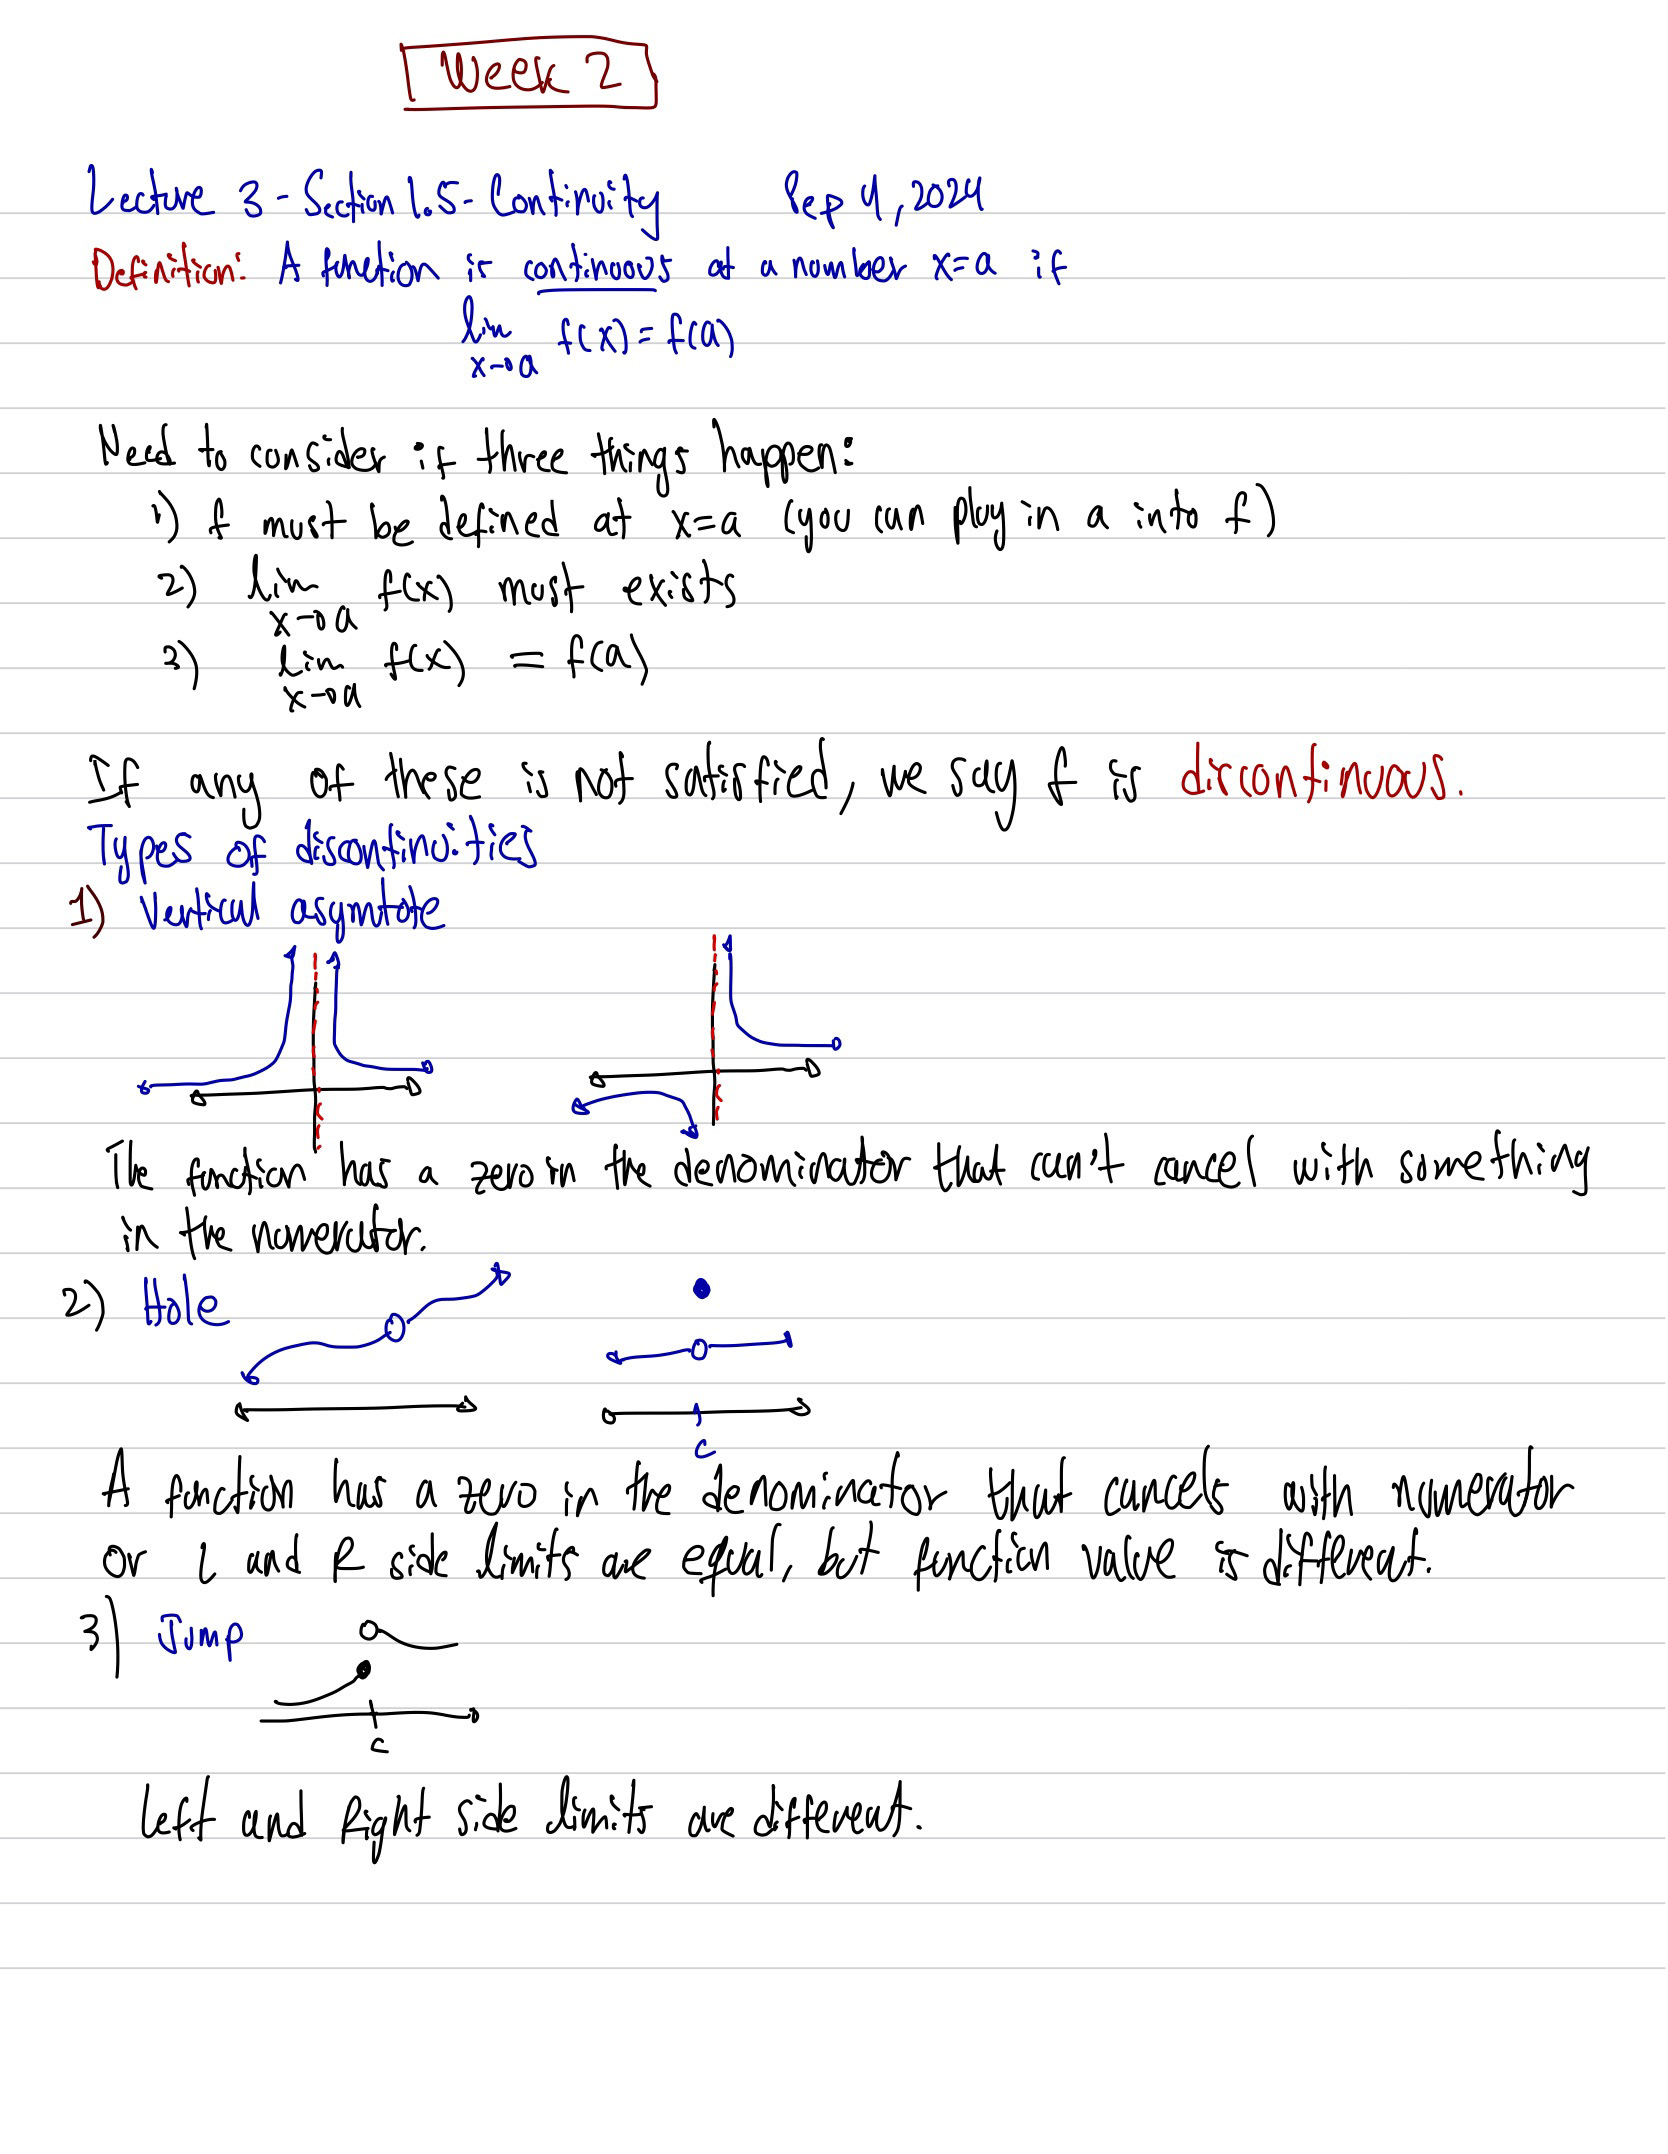 Week 2
Lecture 3 - Section 1.5 - Continuity Sep 4, 2024
Definition: A function is continuous at a number x=a if
lim f(x) = f(a)
x→a
Need to consider if three things happen:
1) f must be defined at x=a (you can plug in a into f)
2) lim f(x) must exists
x→a
3) lim f(x) = f(a)
x→a
If any of these is not satisfied, we say f is discontinuous.
Types of discontinuities
1) Vertical asymtote
The function has a zero in the denominator that can't cancel with something
in the numerator.
2) Hole
c
A function has a zero in the denominator that cancels with numerator
or L and R side limits are equal, but function value is different.
3) Jump
c
Left and Right side limits are different.